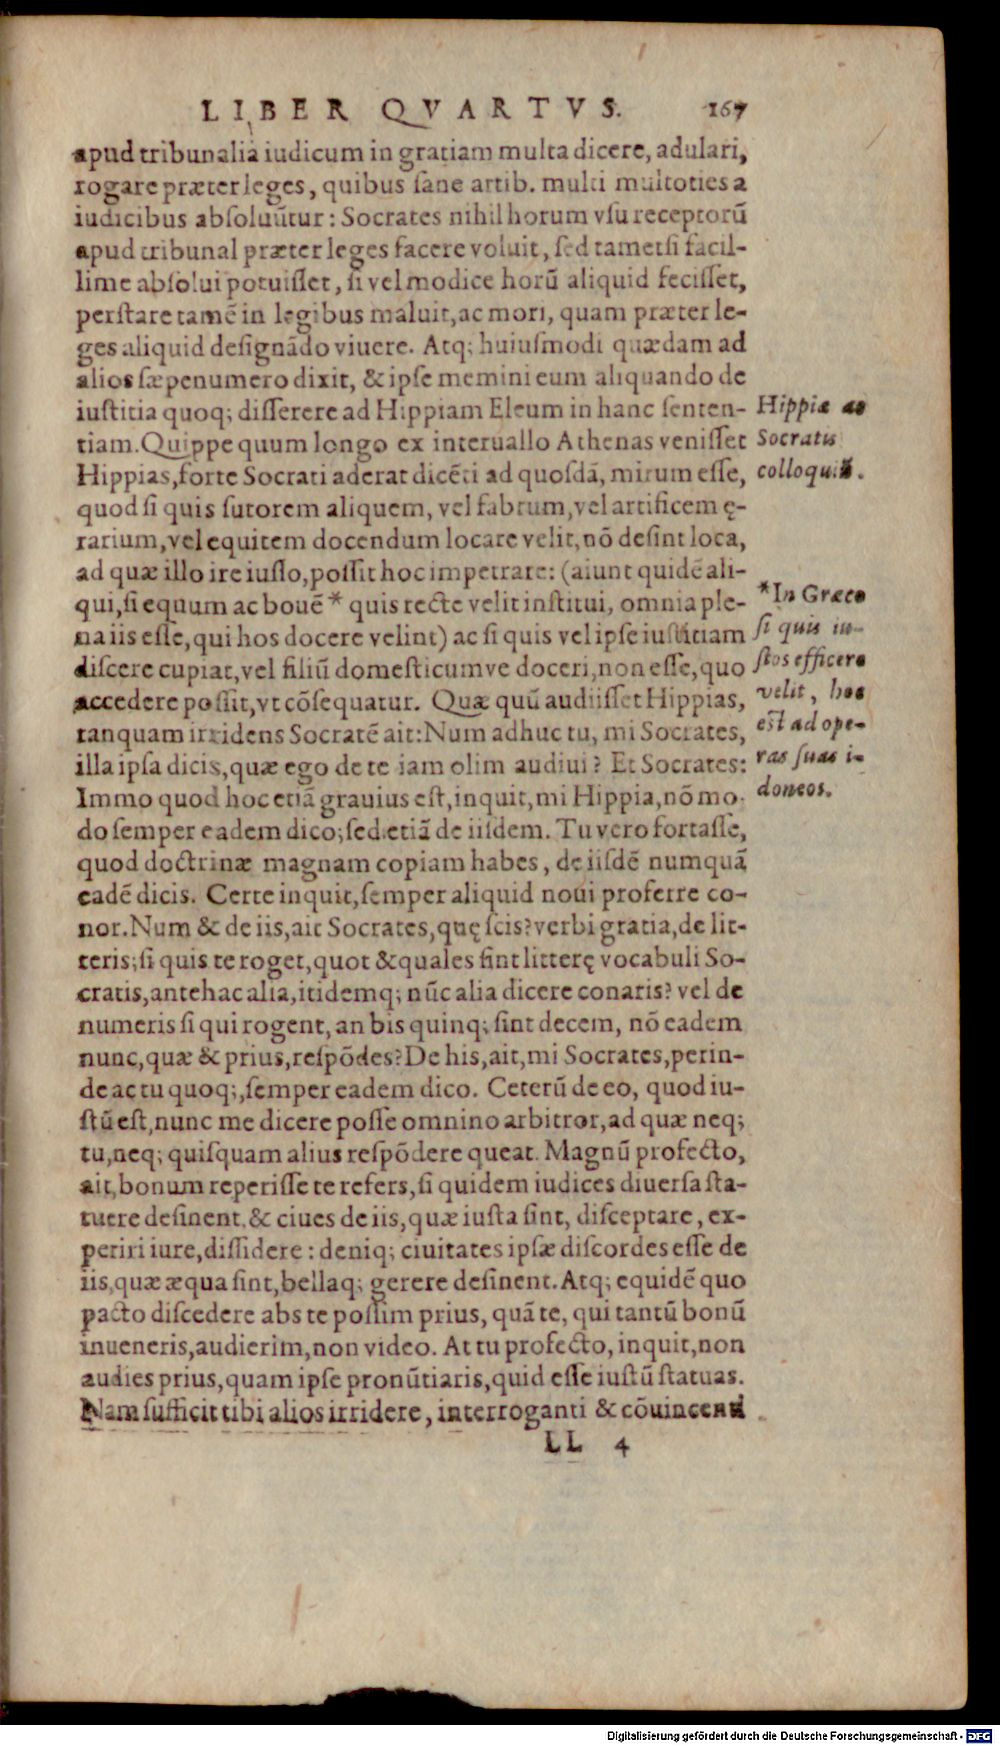 LIBER QVARTVS. 167
apud tribunalia iudicum in gratiam multa dicere, adulari,
rogare præter leges, quibus ſane artib. multi multoties a
iudicibus abſoluũtur: Socrates nihil horum vſu receptorũ
apud tribunal præter leges facere voluit, ſed tametſi facil-
lime abſolui potuiſſet, ſi vel modice horũ aliquid feciſſet,
perſtare tamẽ in legibus maluit, ac mori, quam præter le-
ges aliquid deſignãdo viuere. Atq; huiuſmodi quædam ad
alios ſæpenumero dixit, & ipſe memini eum aliquando de
iuſtitia quoq; diſſerere ad Hippiam Eleum in hanc ſenten-
tiam. Quippe quum longo ex interuallo Athenas veniſſet
Hippias, forte Socrati aderat dicẽti ad quoſdã, mirum eſſe,
quod ſi quis ſutorem aliquem, vel fabrum, vel artificem ę-
rarium, vel equitem docendum locare velit, nõ deſint loca,
ad quæ illo ire iuſſo, poſſit hoc impetrare: (aiunt quidẽ ali-
qui, ſi equum ac bouẽ * quis recte velit inſtitui, omnia ple-
na iis eſſe, qui hos docere velint) ac ſi quis vel ipſe iuſtitiam
diſcere cupiat, vel filiũ domeſticumve doceri, non eſſe, quo
accedere poſſit, vt cõſequatur. Quæ quũ audiiſſet Hippias,
tanquam irridens Socratẽ ait: Num adhuc tu, mi Socrates,
illa ipſa dicis, quæ ego de te iam olim audiui? Et Socrates:
Immo quod hoc etiã grauius eſt, inquit, mi Hippia, nõ mo-
do ſemper eadem dico; ſed etiã de iiſdem. Tu vero fortaſſe,
quod doctrinæ magnam copiam habes, de iiſdẽ numquã
eadẽ dicis. Certe inquit, ſemper aliquid noui proferre co-
nor. Num & de iis, ait Socrates, quę ſcis? verbi gratia, de lit-
teris; ſi quis te roget, quot & quales ſint litterę vocabuli So-
cratis, antehac alia, itidemq; nũc alia dicere conaris? vel de
numeris ſi qui rogent, an bis quinq; ſint decem, nõ eadem
nunc, quæ & prius, reſpõdes? De his, ait, mi Socrates, perin-
de ac tu quoq;, ſemper eadem dico. Ceterũ de eo, quod iu-
ſtũ eſt, nunc me dicere poſſe omnino arbitror, ad quæ neq;
tu, neq; quiſquam alius reſpõdere queat. Magnũ profecto,
ait, bonum reperiſſe te refers, ſi quidem iudices diuerſa ſta-
tuere deſinent, & ciues de iis, quæ iuſta ſint, diſceptare, ex-
periri iure, diſſidere: deniq; ciuitates ipſæ diſcordes eſſe de
iis, quæ æqua ſint, bellaq; gerere deſinent. Atq; equidẽ quo
pacto diſcedere abs te poſſim prius, quã te, qui tantũ bonũ
inueneris, audierim, non video. At tu profecto, inquit, non
audies prius, quam ipſe pronũtiaris, quid eſſe iuſtũ ſtatuas.
Nam ſufficit tibi alios irridere, interroganti & cõuincenti
LL 4
Hippiæ ac
Socratis
colloquiũ.
*In Græco
ſi quis iu-
ſtos efficere
velit, hoc
eſt ad ope-
ras ſuas i-
doneos.
Digitalisierung gefördert durch die Deutsche Forschungsgemeinschaft - DFG